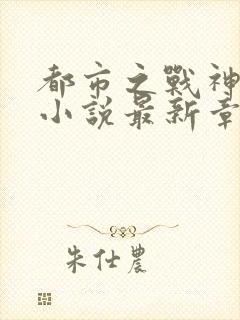 都市之戰神
小說最新章
朱仕農